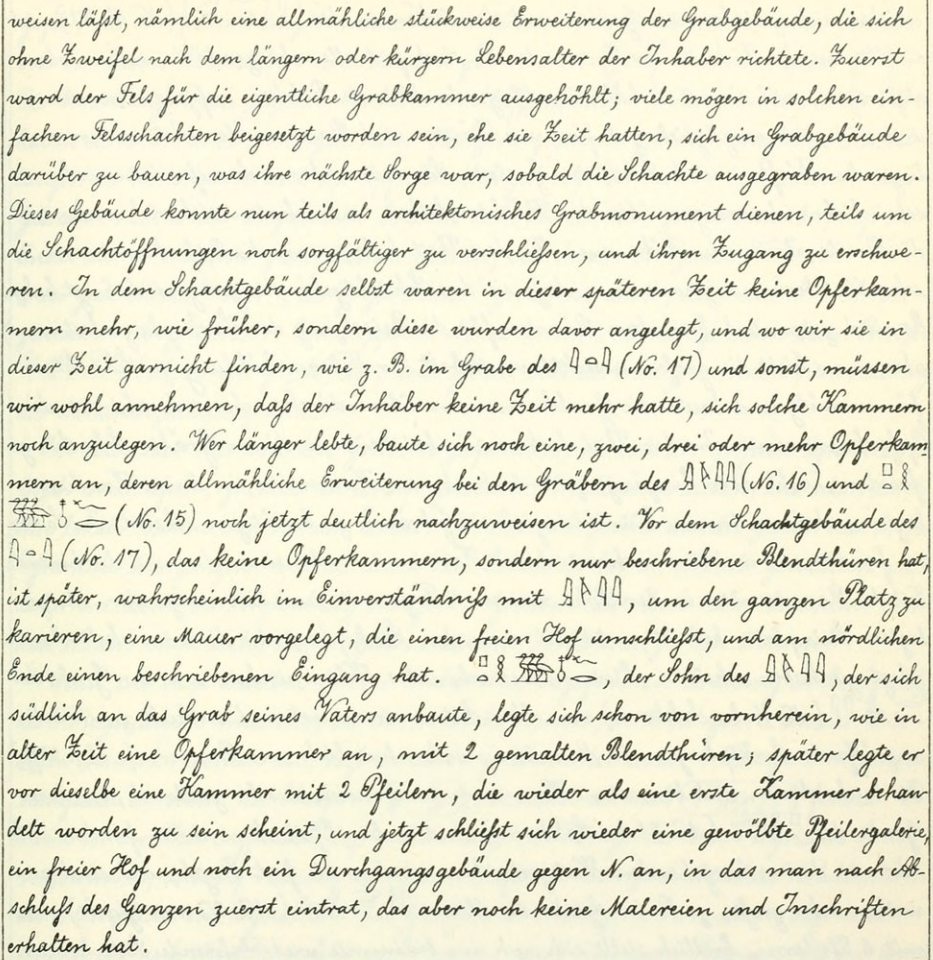 weisen läſst, nämlich eine allmähliche stückweise Erweiterung der Grabgebäude, die sich
ohne Zweifel nach dem längern oder kürzern Lebensalter der Inhaber richtete. Zuerst
ward der Fels für die eigentliche Grabkammer ausgehöhlt; viele mögen in solchen ein-
fachen Felsschachten beigesetzt worden sein, ehe sie Zeit hatten, sich ein Grabgebäude
darüber zu bauen, was ihre nächste Sorge war, sobald die Schachte ausgegraben waren.
Dieses Gebäude konnte nun teils als architektonisches Grabmonument dienen, teils um
die Schachtöffnungen noch sorgfältiger zu verschlieſsen, und ihren Zugang zu erschwe-
ren. In dem Schachtgebäude selbst waren in dieser späteren Zeit keine Opferkam-
mern mehr, wie früher, sondern diese wurden davor angelegt, und wo wir sie in
dieser Zeit garnicht finden, wie z. B. im Grabe des 𓇋𓏏𓇋 (No. 17) und sonst, müssen
wir wohl annehmen, daſs der Inhaber keine Zeit mehr hatte, sich solche Kammern
noch anzulegen. Wer länger lebte, baute sich noch eine, zwei, drei oder mehr Opferkam
mern an, deren allmähliche Erweiterung bei den Gräbern des (No. 16) und
(No. 15) noch jetzt deutlich nachzuweisen ist. Vor dem Schachtgebäude des
𓇋𓏏𓇋 (No. 17), das keine Opferkammern, sondern nur beschriebene Blendthüren hat,
ist später, wahrscheinlich im Einverständniſs mit , um den ganzen Platz zu
karieren, eine Mauer vorgelegt, die einen freien Hof umschlieſst, und am nördlichen
Ende einen beschriebenen Eingang hat. , der Sohn des , der sich
südlich an das Grab seines Vaters anbaute, legte sich schon von vornherein, wie in
alter Zeit eine Opferkammer an, mit 2 gemalten Blendthüren; später legte er
vor dieselbe eine Kammer mit 2 Pfeilern, die wieder als eine erste Kammer behan
delt worden zu sein scheint, und jetzt schlieſst sich wieder eine gewölbte Pfeilergalerie,
ein freier Hof und noch ein Durchgangsgebäude gegen N. an, in das man nach Ab-
schluſs des Ganzen zuerst eintrat, das aber noch keine Malereien und Inschriften
erhalten hat.